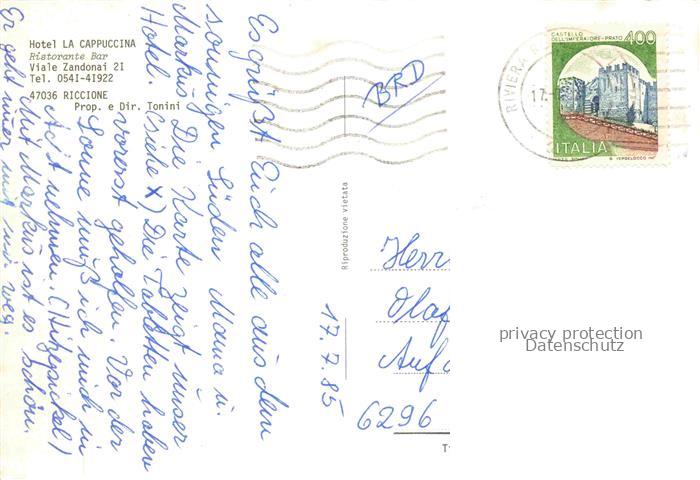 Hotel LA CAPPUCCINA
Ristorante Bar
Viale Zandonai 21
Tel. 0541-41922
47036 RICCIONE
Prop. e Dir. Tonini
Es grüßt Euch alle aus dem
sonnigen Süden Mama u.
Markus. Die Karte zeigt unser
Hotel. (siehe x) Die Tabletten haben
vorerst geholfen. Vor der
Sonne muß ich mich in
Acht nehmen. (Hitzepickel)
Mit Markus ist es schön.
Er geht hier mit mir weg.
17.7.85
Riproduzione vietata
BRD
Herr
Olaf
Auf
6296
RIVIERA
17
CASTELLO
DELL'IMPERATORE-PRATO
400
ITALIA
privacy protection
Datenschutz